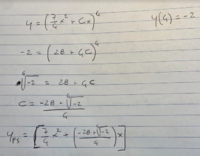 y = (7/4 x² + Cx)⁴    y(4) = -2
-2 = (28 + 4C)⁴
⁴√-2 = 28 + 4C
C = (-28 + ⁴√-2)/4
y_PS = [7/4 x² + ((-28 + ⁴√-2)/4) x]